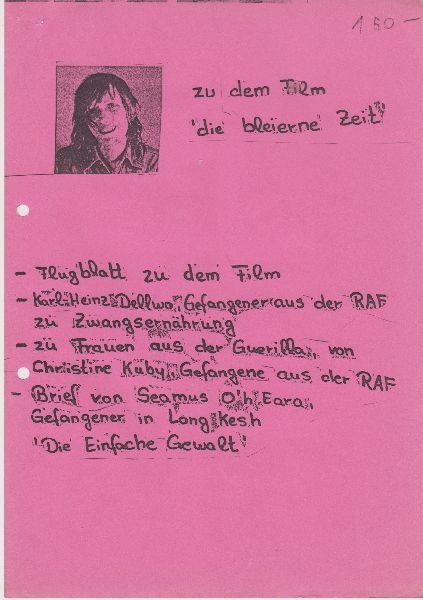 1 50 -
zu dem Film
'die bleierne Zeit'
- Flugblatt zu dem Film
- Karl-Heinz Dellwo, Gefangener aus der RAF
zu Zwangsernährung
- zu Frauen aus der Guerilla, von
Christine Kuby, Gefangene aus der RAF
- Brief von Seamus O'h Eara,
Gefangener in Long Kesh
'Die Einfache Gewalt'